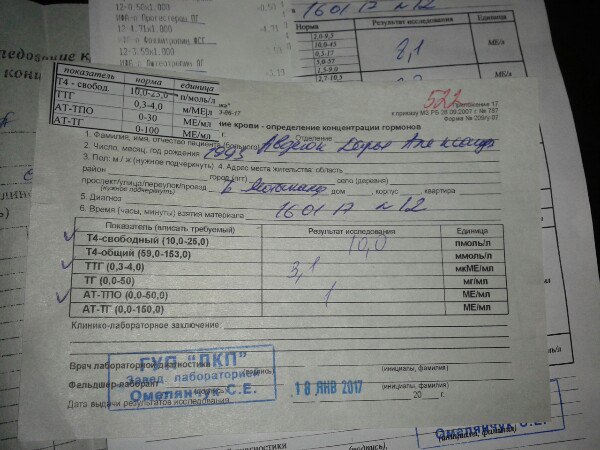 12-0.50х1.000
ИФА-р Прогестерон ПГ
12-4.71х1.000
ИФА-р Фоллитропин ФСГ
12-3.59х1.000
ИФА-р Лютеотропин ЛГ
1601 17 №12
Норма
Результат исследования
Единица
2,0-9,5
10,0-45
0,5-17
5,0-57
1,5-9,0
2,7-10,5
2,1
МЕ/л
показатель норма единица
Т4 - свобод. 10,0-25,0 п/моль/л
ТТГ 0,3-4,0 м/МЕ/л
АТ-ТПО 0-30 МЕ/мл
АТ-ТГ 0-100 МЕ/мл
522
Приложение 17
к приказу МЗ РБ 28.09.2007 г. № 787
Форма № 209/у-07
ние крови - определение концентрации гормонов
Отделение
1. Фамилия, имя, отчество пациента (больного)
2. Число, месяц, год рождения 1993
3. Пол: м / ж (нужное подчеркнуть) 4. Адрес места жительства: область
район город (пгт) село (деревня)
проспект/улица/переулок/проезд дом , корпус , квартира
(нужное подчеркнуть)
5. Диагноз
6. Время (часы, минуты) взятия материала 1601 17 №12
Показатель (вписать требуемый) Результат исследования Единица
Т4-свободный (10,0-25,0) 10,0 пмоль/л
Т4-общий (59,0-153,0) ммоль/л
ТТГ (0,3-4,0) 3,1 мкМЕ/мл
ТГ (0,0-50) мг/мл
АТ-ТПО (0,0-50,0) 1 МЕ/мл
АТ-ТГ (0,0-150,0) МЕ/мл
Клинико-лабораторное заключение:
Врач лабораторной диагностики (подпись) (инициалы, фамилия)
Фельдшер-лаборант (инициалы, фамилия)
Дата выдачи результатов исследования 20 г.
Завед. лабораторией
Омелянчук С.Е.
18 ЯНВ 2017
Омелянчук С.Е.
(подпись)
(инициалы, фамилия)